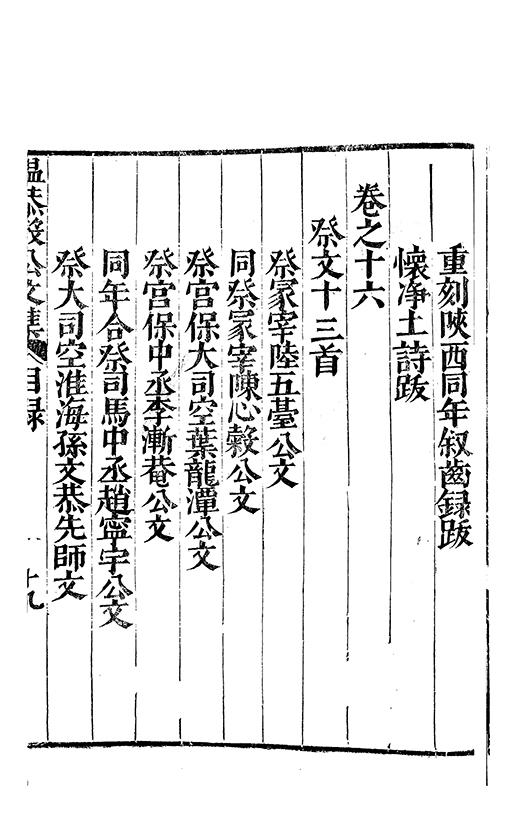 重刻陜西同年叙齒録跋
懷淨土詩跋
卷之十六
祭文十三首
祭冢宰陸五臺公文
同祭冢宰陳心糓公文
祭宮保大司空葉龍潭公文
祭宮保中丞李漸菴公文
同年合祭司馬中丞趙寧宇公文
祭大司空淮海孫文恭先師文
温恭毅公文集 目録 十九